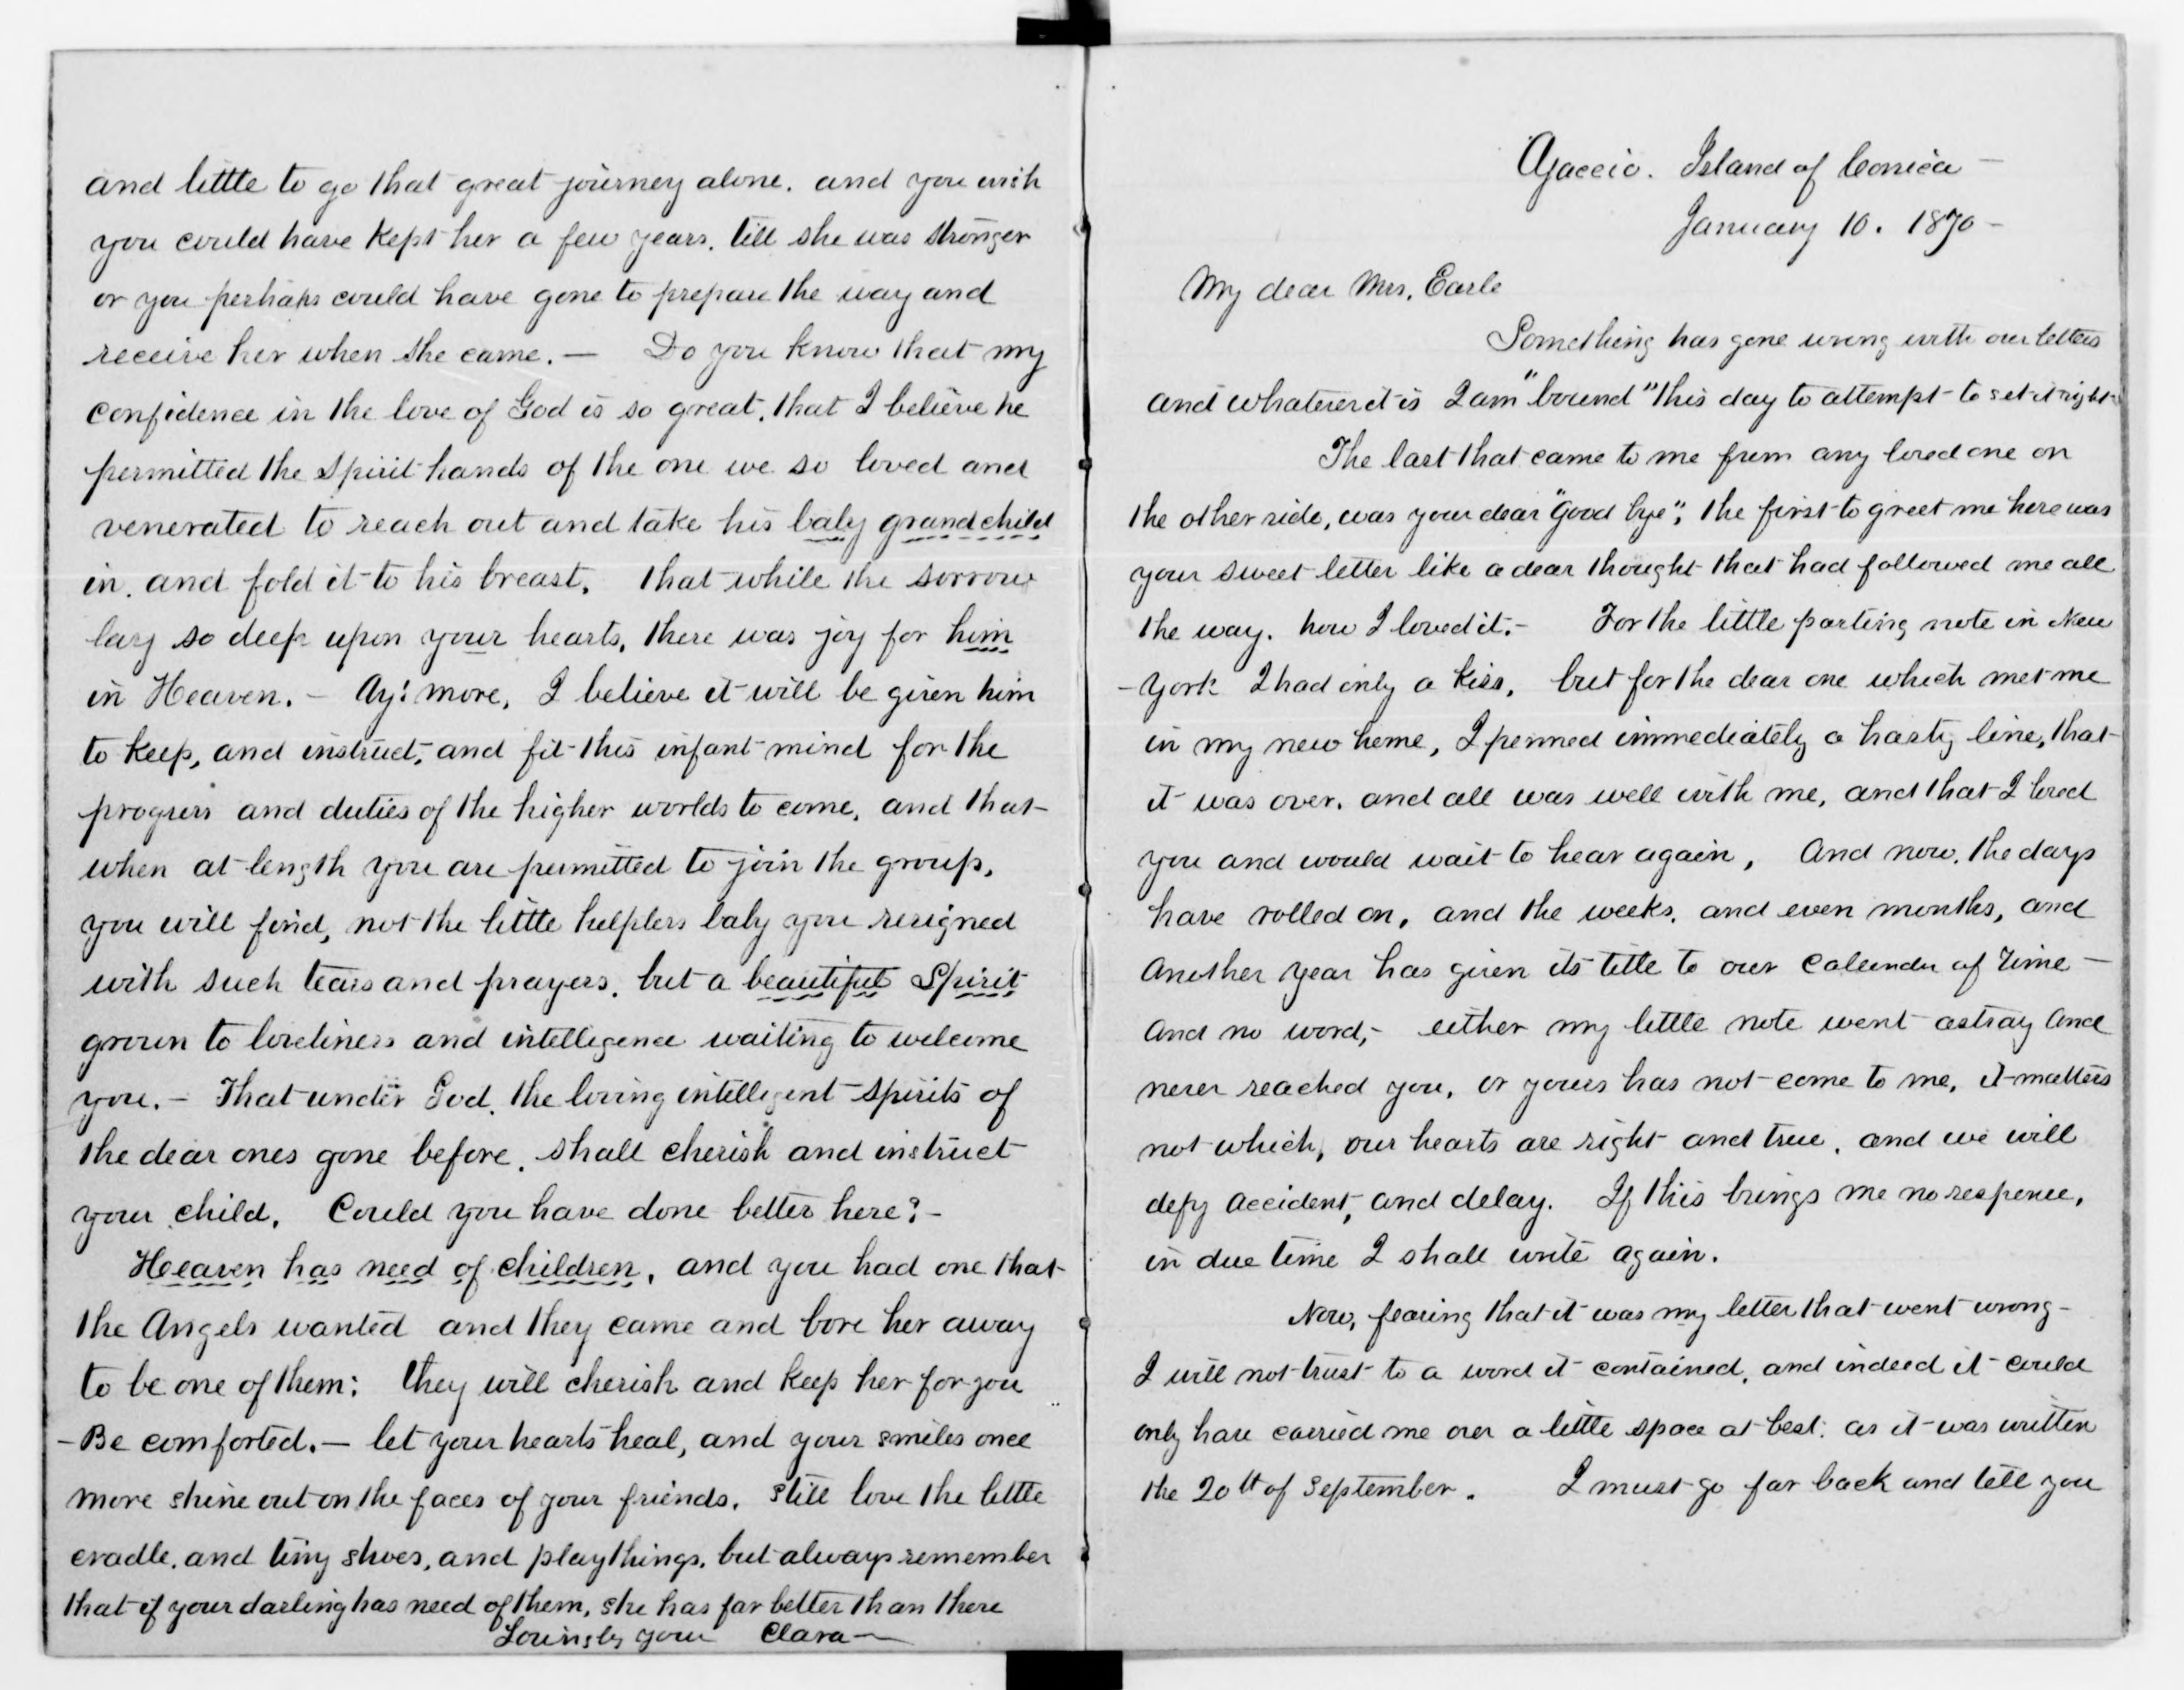 and little to go that great journey alone. and you wish
you could have kept her a few years. till she was stronger
or you perhaps could have gone to prepare the way and
receive her when she came. — Do you know that my
confidence in the love of God is so great, that I believe he
permitted the spirit hands of the one we so loved and
venerated to reach out and take his baby grandchild
in. and fold it to his breast. that while the sorrow
lay so deep upon your hearts, there was joy for him
in Heaven. — Ay! more, I believe it will be given him
to keep, and instruct, and fit this infant mind for the
progress and duties of the higher worlds to come, and that
when at length you are permitted to join the group,
you will find, not the little helpless baby you resigned
with such tears and prayers. but a beautiful Spirit
grown to loveliness and intelligence waiting to welcome
you. — That under God. the loving intelligent spirits of
the dear ones gone before. shall cherish and instruct
your child. Could you have done better here? —
Heaven has need of children, and you had one that
the Angels wanted and they came and bore her away
to be one of them: they will cherish and keep her for you
— Be comforted. — let your hearts heal, and your smiles once
more shine out on the faces of your friends. still love the little
cradle. and tiny shoes, and playthings. but always remember
that if your darling has need of them, she has far better than there
Lovingly your Clara —
Ajaccio. Island of Corsica —
January 10. 1870 —
My dear Mrs. Earle
Something has gone wrong with our letters
and whatever it is I am "bound" this day to attempt to set it right —
The last that came to me from any loved one on
the other side, was your dear "Good bye", the first to greet me here was
your sweet letter like a dear thought that had followed me all
the way. how I loved it. — For the little parting note in New
— York I had only a kiss, but for the dear one which met me
in my new home, I penned immediately a hasty line, that
it was over. and all was well with me, and that I loved
you and would wait to hear again, And now. the days
have rolled on, and the weeks. and even months, and
Another year has given its title to our Calender of Time —
And no word, — either my little note went astray And
never reached you, or yours has not come to me, it matters
not which, our hearts are right and true. and we will
defy Accident, and delay. If this brings me no responce,
in due time I shall write again.
Now, fearing that it was my letter that went wrong —
I will not trust to a word it contained, and indeed it could
only have carried me over a little space at best. as it was written
the 20th of September. I must go far back and tell you